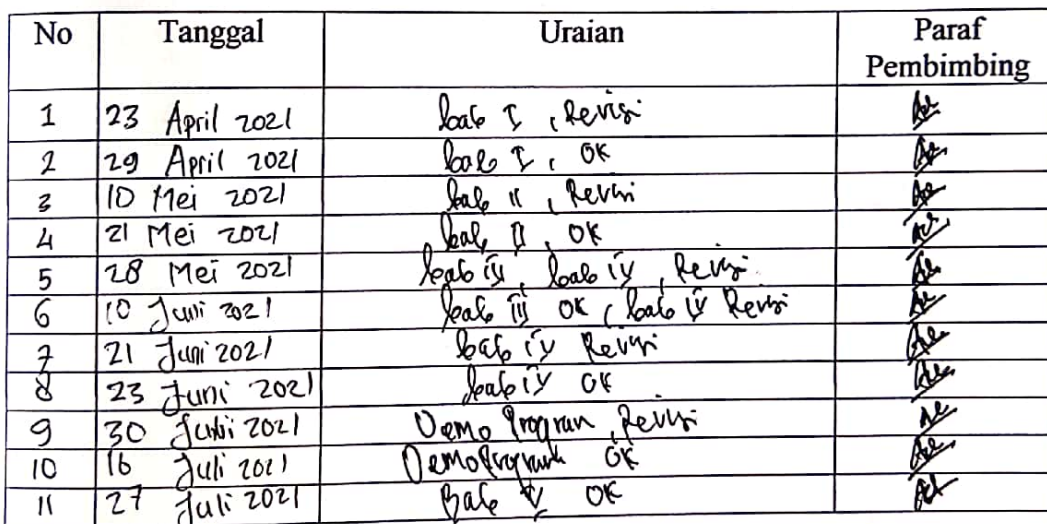 No Tanggal Uraian Paraf
Pembimbing
1 23 April 2021 bab I, Revisi
2 29 April 2021 bab I, OK
3 10 Mei 2021 bab II, Revisi
4 21 Mei 2021 bab II, OK
5 28 Mei 2021 bab III, bab IV, Revisi
6 10 Juni 2021 bab III OK, bab IV Revisi
7 21 Juni 2021 bab IV Revisi
8 23 Juni 2021 bab IV OK
9 30 Juni 2021 Demo Program, Revisi
10 16 Juli 2021 Demo Program OK
11 27 Juli 2021 Bab V OK